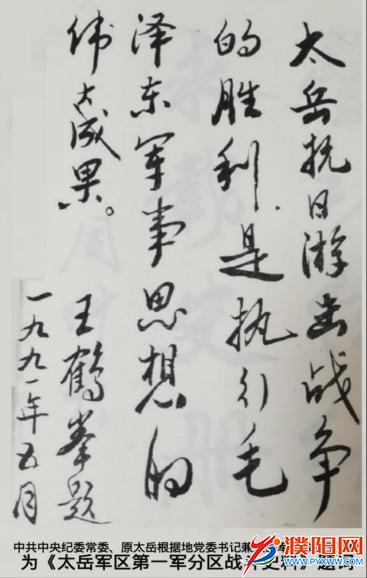 太岳抗日游击战争
的胜利是执行毛
泽东军事思想的
伟大成果。
王鹤峰题
一九九一年五月
中共中央纪委常委、原太岳根据地党委书记兼
为《太岳军区第一军分区战斗史料》题词
濮阳网